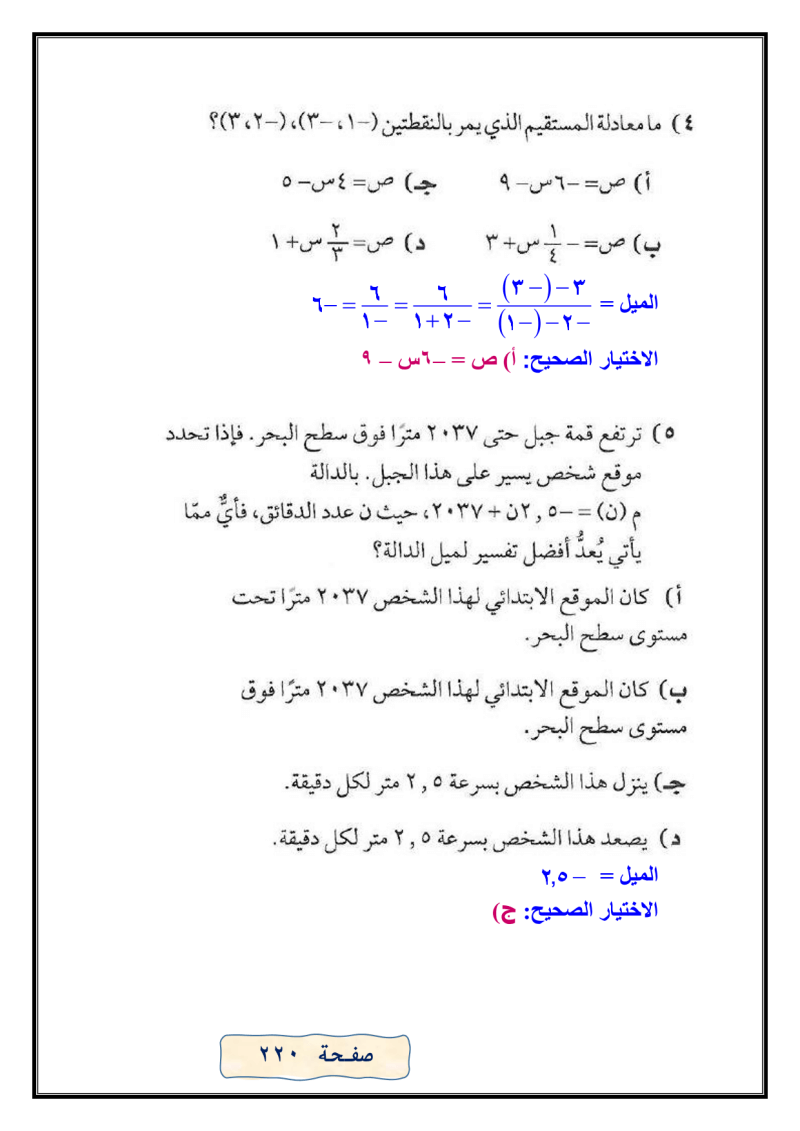 ٤) ما معادلة المستقيم الذي يمر بالنقطتين (–١، –٣)، (–٢، ٣)؟
أ) ص= –٦س– ٩ جـ) ص= ٤س– ٥
ب) ص= – ١/٤ س+ ٣ د) ص= ٢/٣ س+ ١
الميل = (٣ – (– ٣)) / (– ٢ – (– ١)) = ٦ / (– ٢ + ١) = ٦ / – ١ = – ٦
الاختيار الصحيح: أ) ص = –٦س – ٩
٥) ترتفع قمة جبل حتى ٢٠٣٧ مترًا فوق سطح البحر. فإذا تحدد
موقع شخص يسير على هذا الجبل. بالدالة
م (ن) = –٢,٥ن + ٢٠٣٧، حيث ن عدد الدقائق، فأيٌّ ممّا
يأتي يُعدُّ أفضل تفسير لميل الدالة؟
أ) كان الموقع الابتدائي لهذا الشخص ٢٠٣٧ مترًا تحت
مستوى سطح البحر.
ب) كان الموقع الابتدائي لهذا الشخص ٢٠٣٧ مترًا فوق
مستوى سطح البحر.
جـ) ينزل هذا الشخص بسرعة ٢,٥ متر لكل دقيقة.
د) يصعد هذا الشخص بسرعة ٢,٥ متر لكل دقيقة.
الميل = – ٢,٥
الاختيار الصحيح: ج)
صفحة ٢٢٠